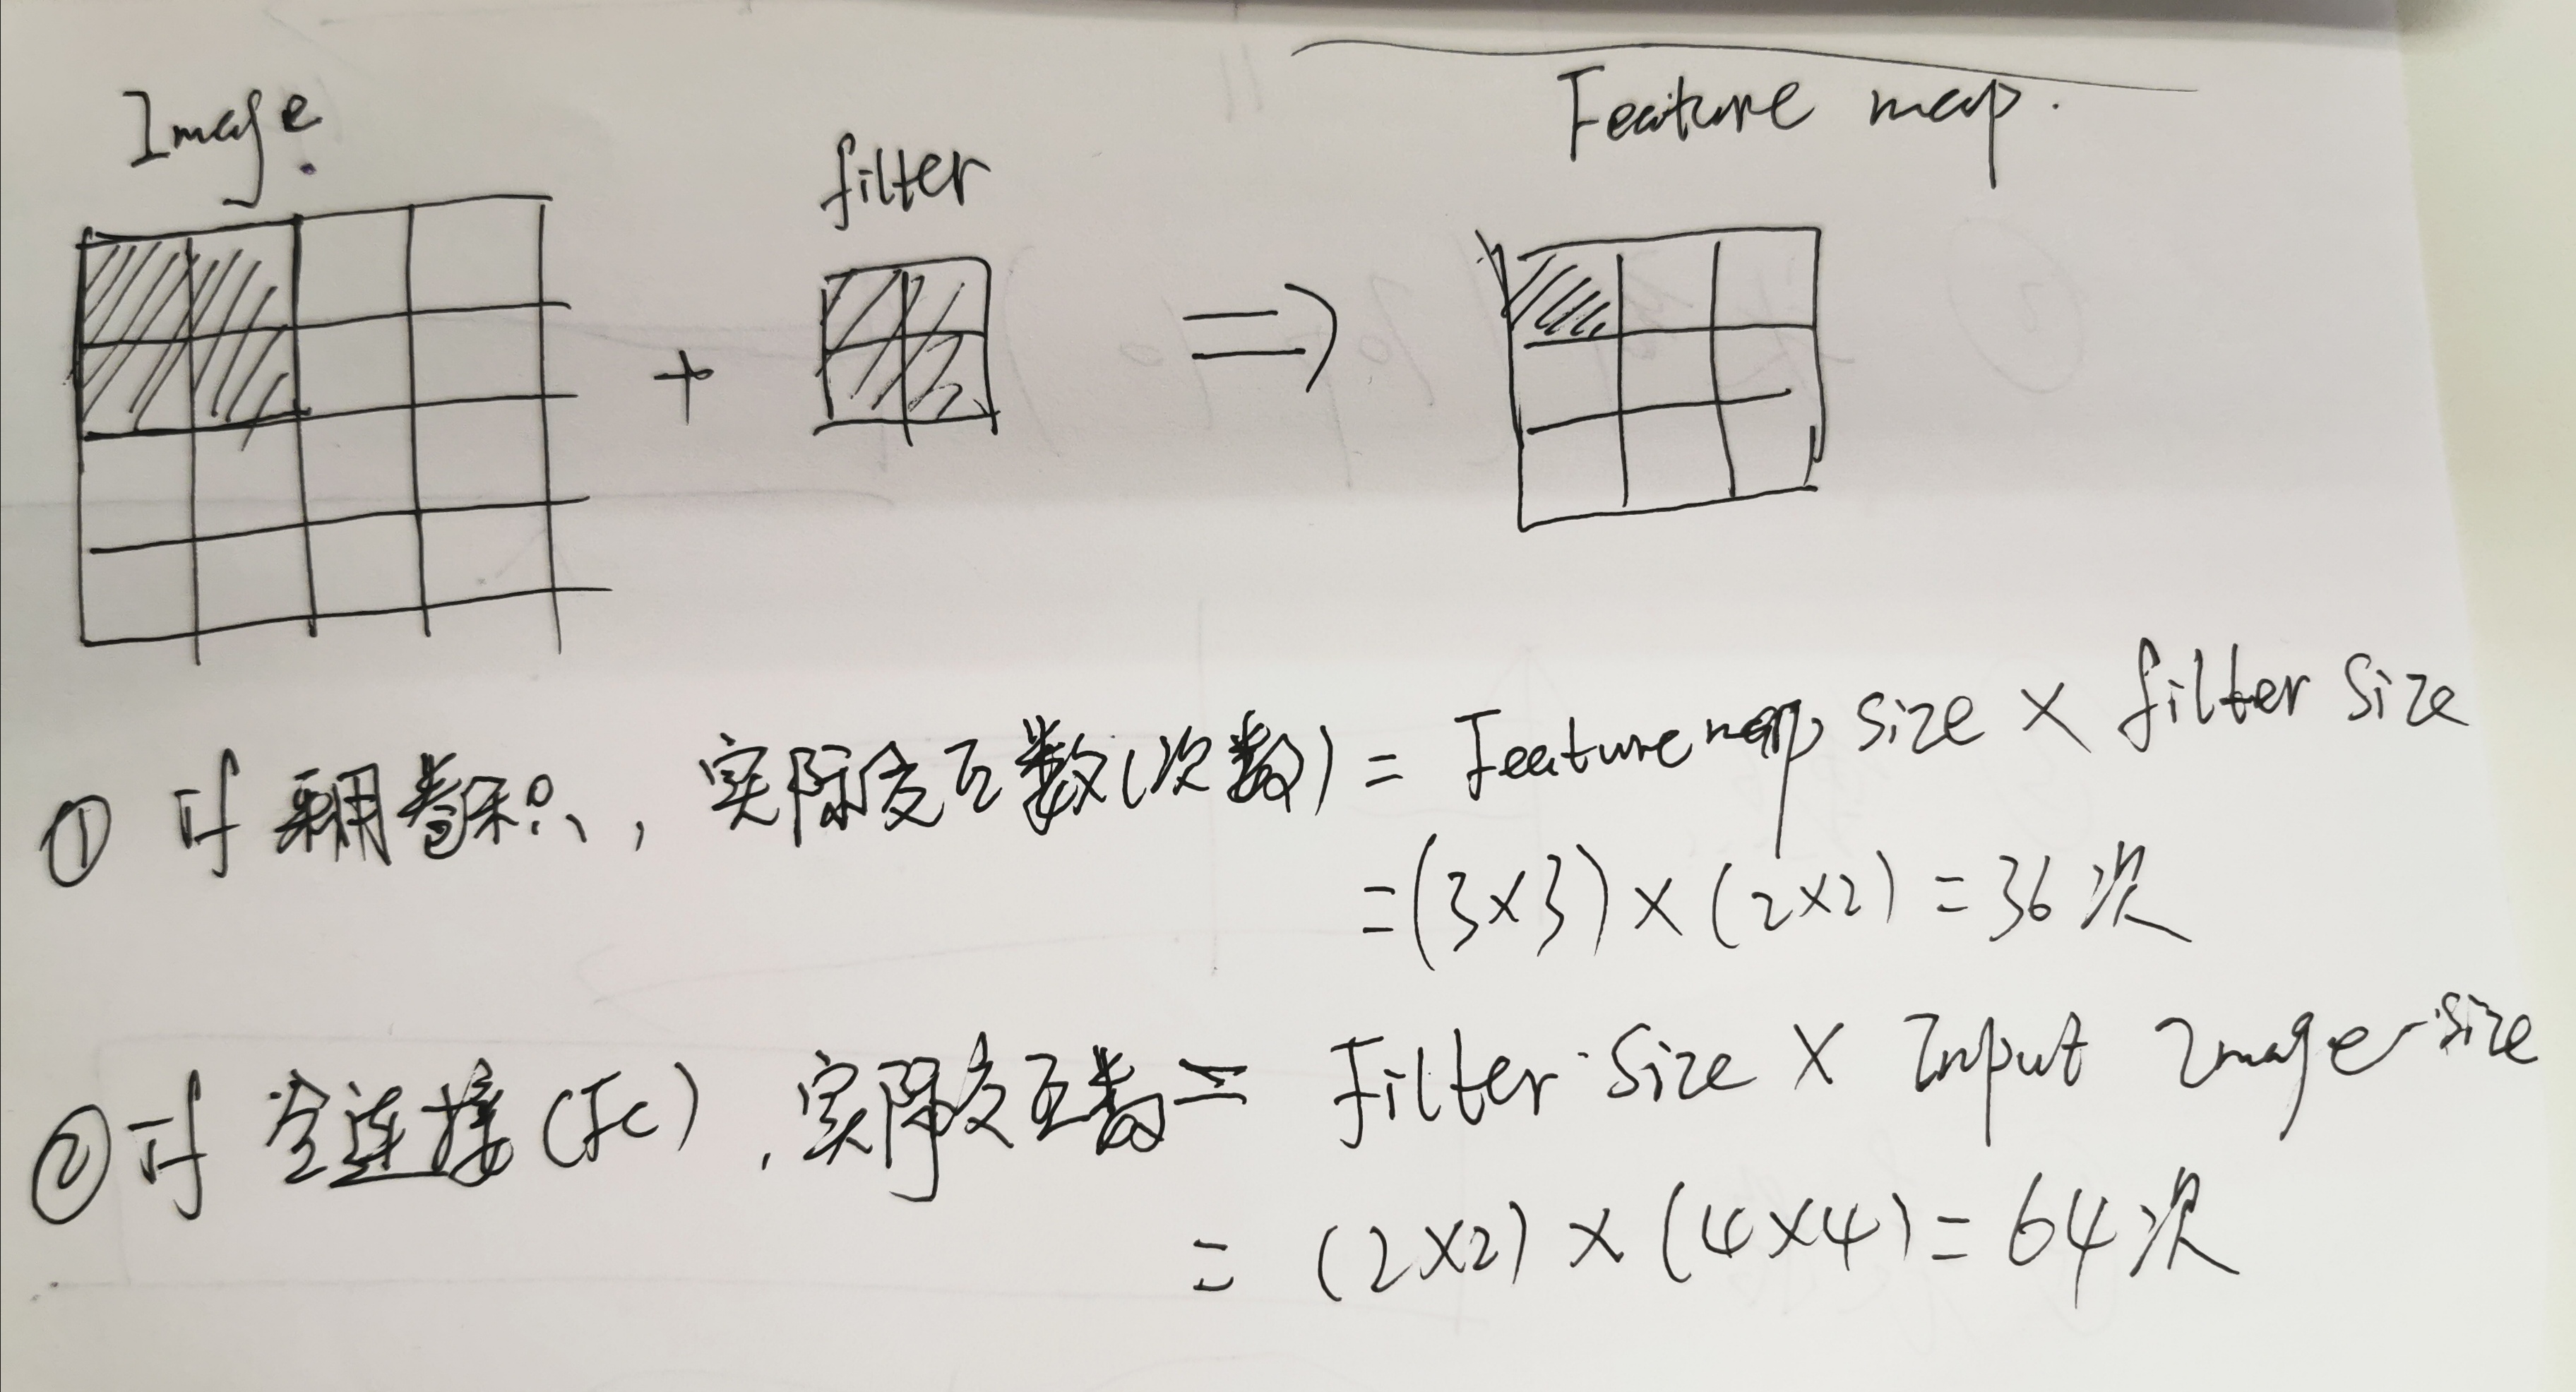 Image
filter
Feature map.
+ ⇒
① if 采用卷积, 实际交互数(次数) = Feature map size × filter size
=(3×3)×(2×2)=36次
② if 全连接(Fc), 实际交互数= Filter Size × Input Image size
= (2×2) × (4×4)=64次